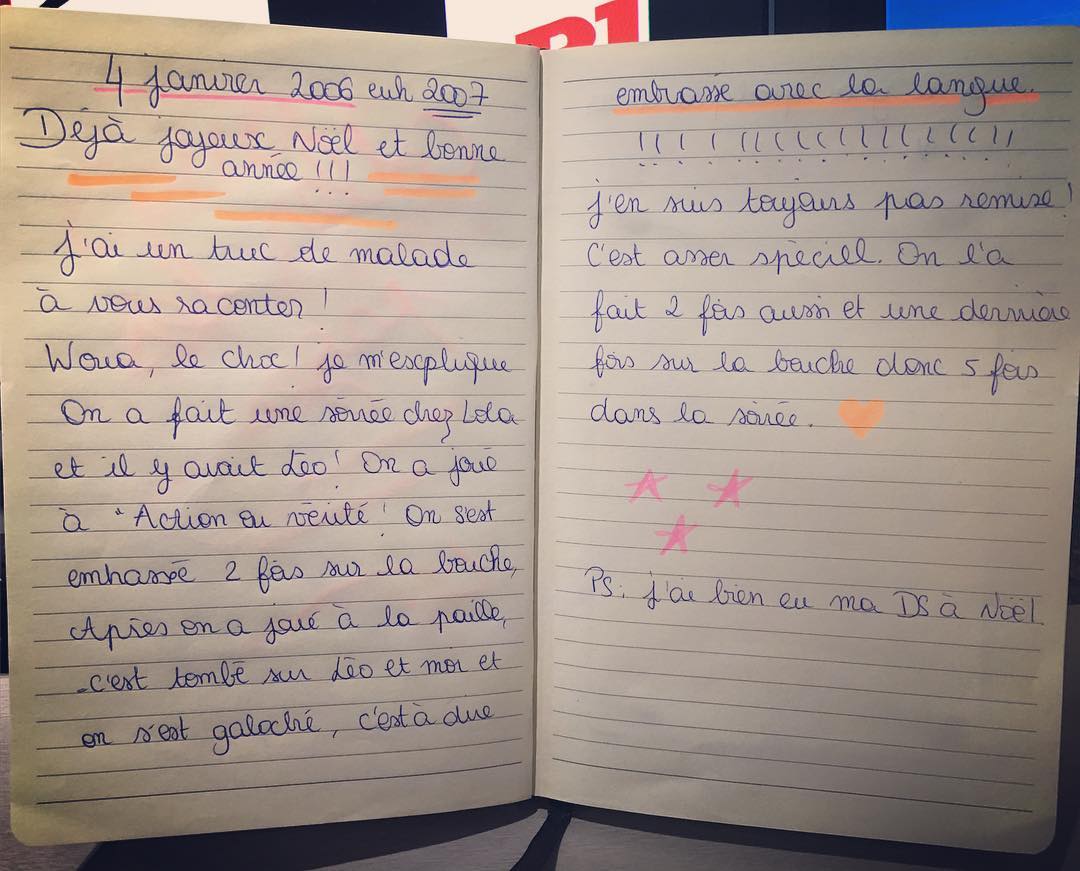 4 janvier 2006 euh 2007
Déjà joyeux Nöel et bonne
année !!!
J'ai un truc de malade
à vous raconter !
Woua, le choc ! je m'esxplique
On a fait une soirée chez Lola
et il y avait Léo ! On a joué
à "Action ou vérité ! On s'est
embassée 2 fois sur la bouche,
Après on a joué à la paille,
c'est tombé sur Léo et moi et
on s'est galoché, c'est à dire
embrassé avec la langue.
!!!!!!!!!!!!!!!!!!!
j'en suis toujours pas remise !
C'est asser spéciell. On l'a
fait 2 fois aussi et une dernière
fois sur la bouche donc 5 fois
dans la soirée.
PS: j'ai bien eu ma DS à Nöël